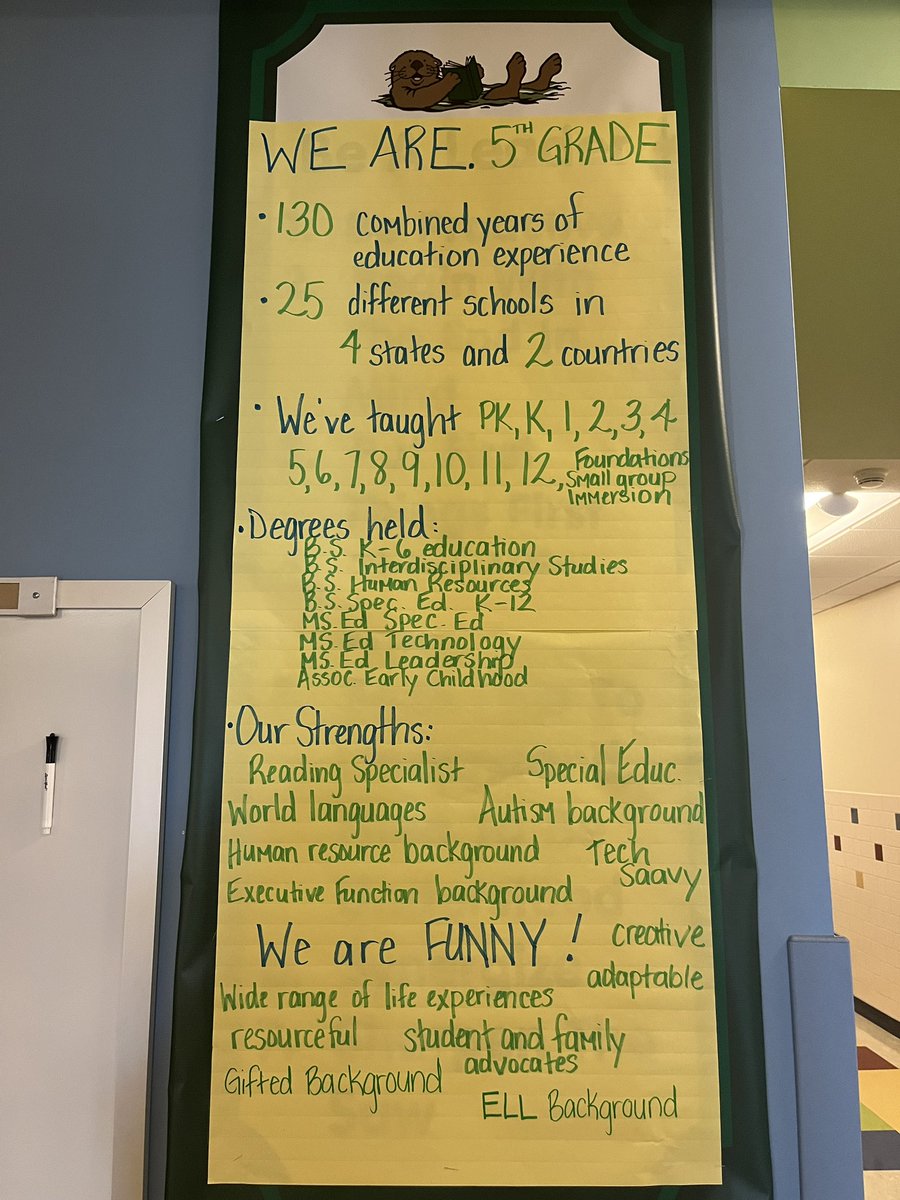 WE ARE. 5TH GRADE
• 130 combined years of
education experience
• 25 different schools in
4 states and 2 countries
• We've taught PK, K, 1, 2, 3, 4
5, 6, 7, 8, 9, 10, 11, 12, Foundations
Small group
Immersion
• Degrees held:
B.S. K-6 education
B.S. Interdisciplinary Studies
B.S. Human Resources
B.S. Spec. Ed. K-12
MS. Ed Spec. Ed
MS. Ed Technology
MS. Ed Leadership
Assoc. Early Childhood
• Our Strengths:
Reading Specialist Special Educ.
World languages Autism background
Human resource background Tech
Saavy
Executive Function background
We are FUNNY! creative
adaptable
Wide range of life experiences
resourceful student and family
advocates
Gifted Background
ELL Background